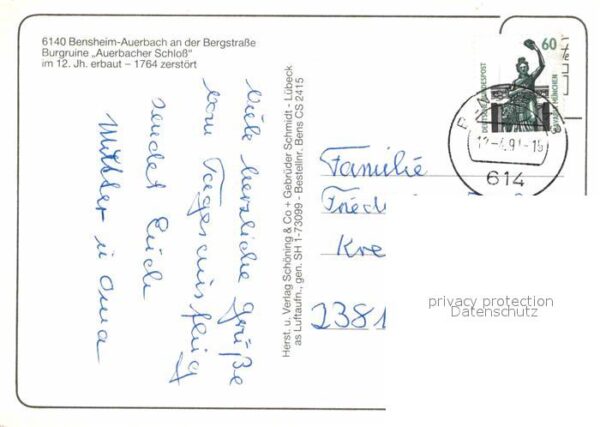 6140 Bensheim-Auerbach an der Bergstraße
Burgruine „Auerbacher Schloß"
im 12. Jh. erbaut – 1764 zerstört
Viele herzliche Grüße
vom Tagesausflug
sendet Euch
Mutter u Oma
Herst. u. Verlag Schöning & Co + Gebrüder Schmidt - Lübeck
as Luftaufn., gen. SH 1-73099 - Bestellnr. Bens CS 2415
60
DEUTSCHE BUNDESPOST
BAVARIA MÜNCHEN
614
Familie
Fried
Kre
2381
privacy protection
Datenschutz